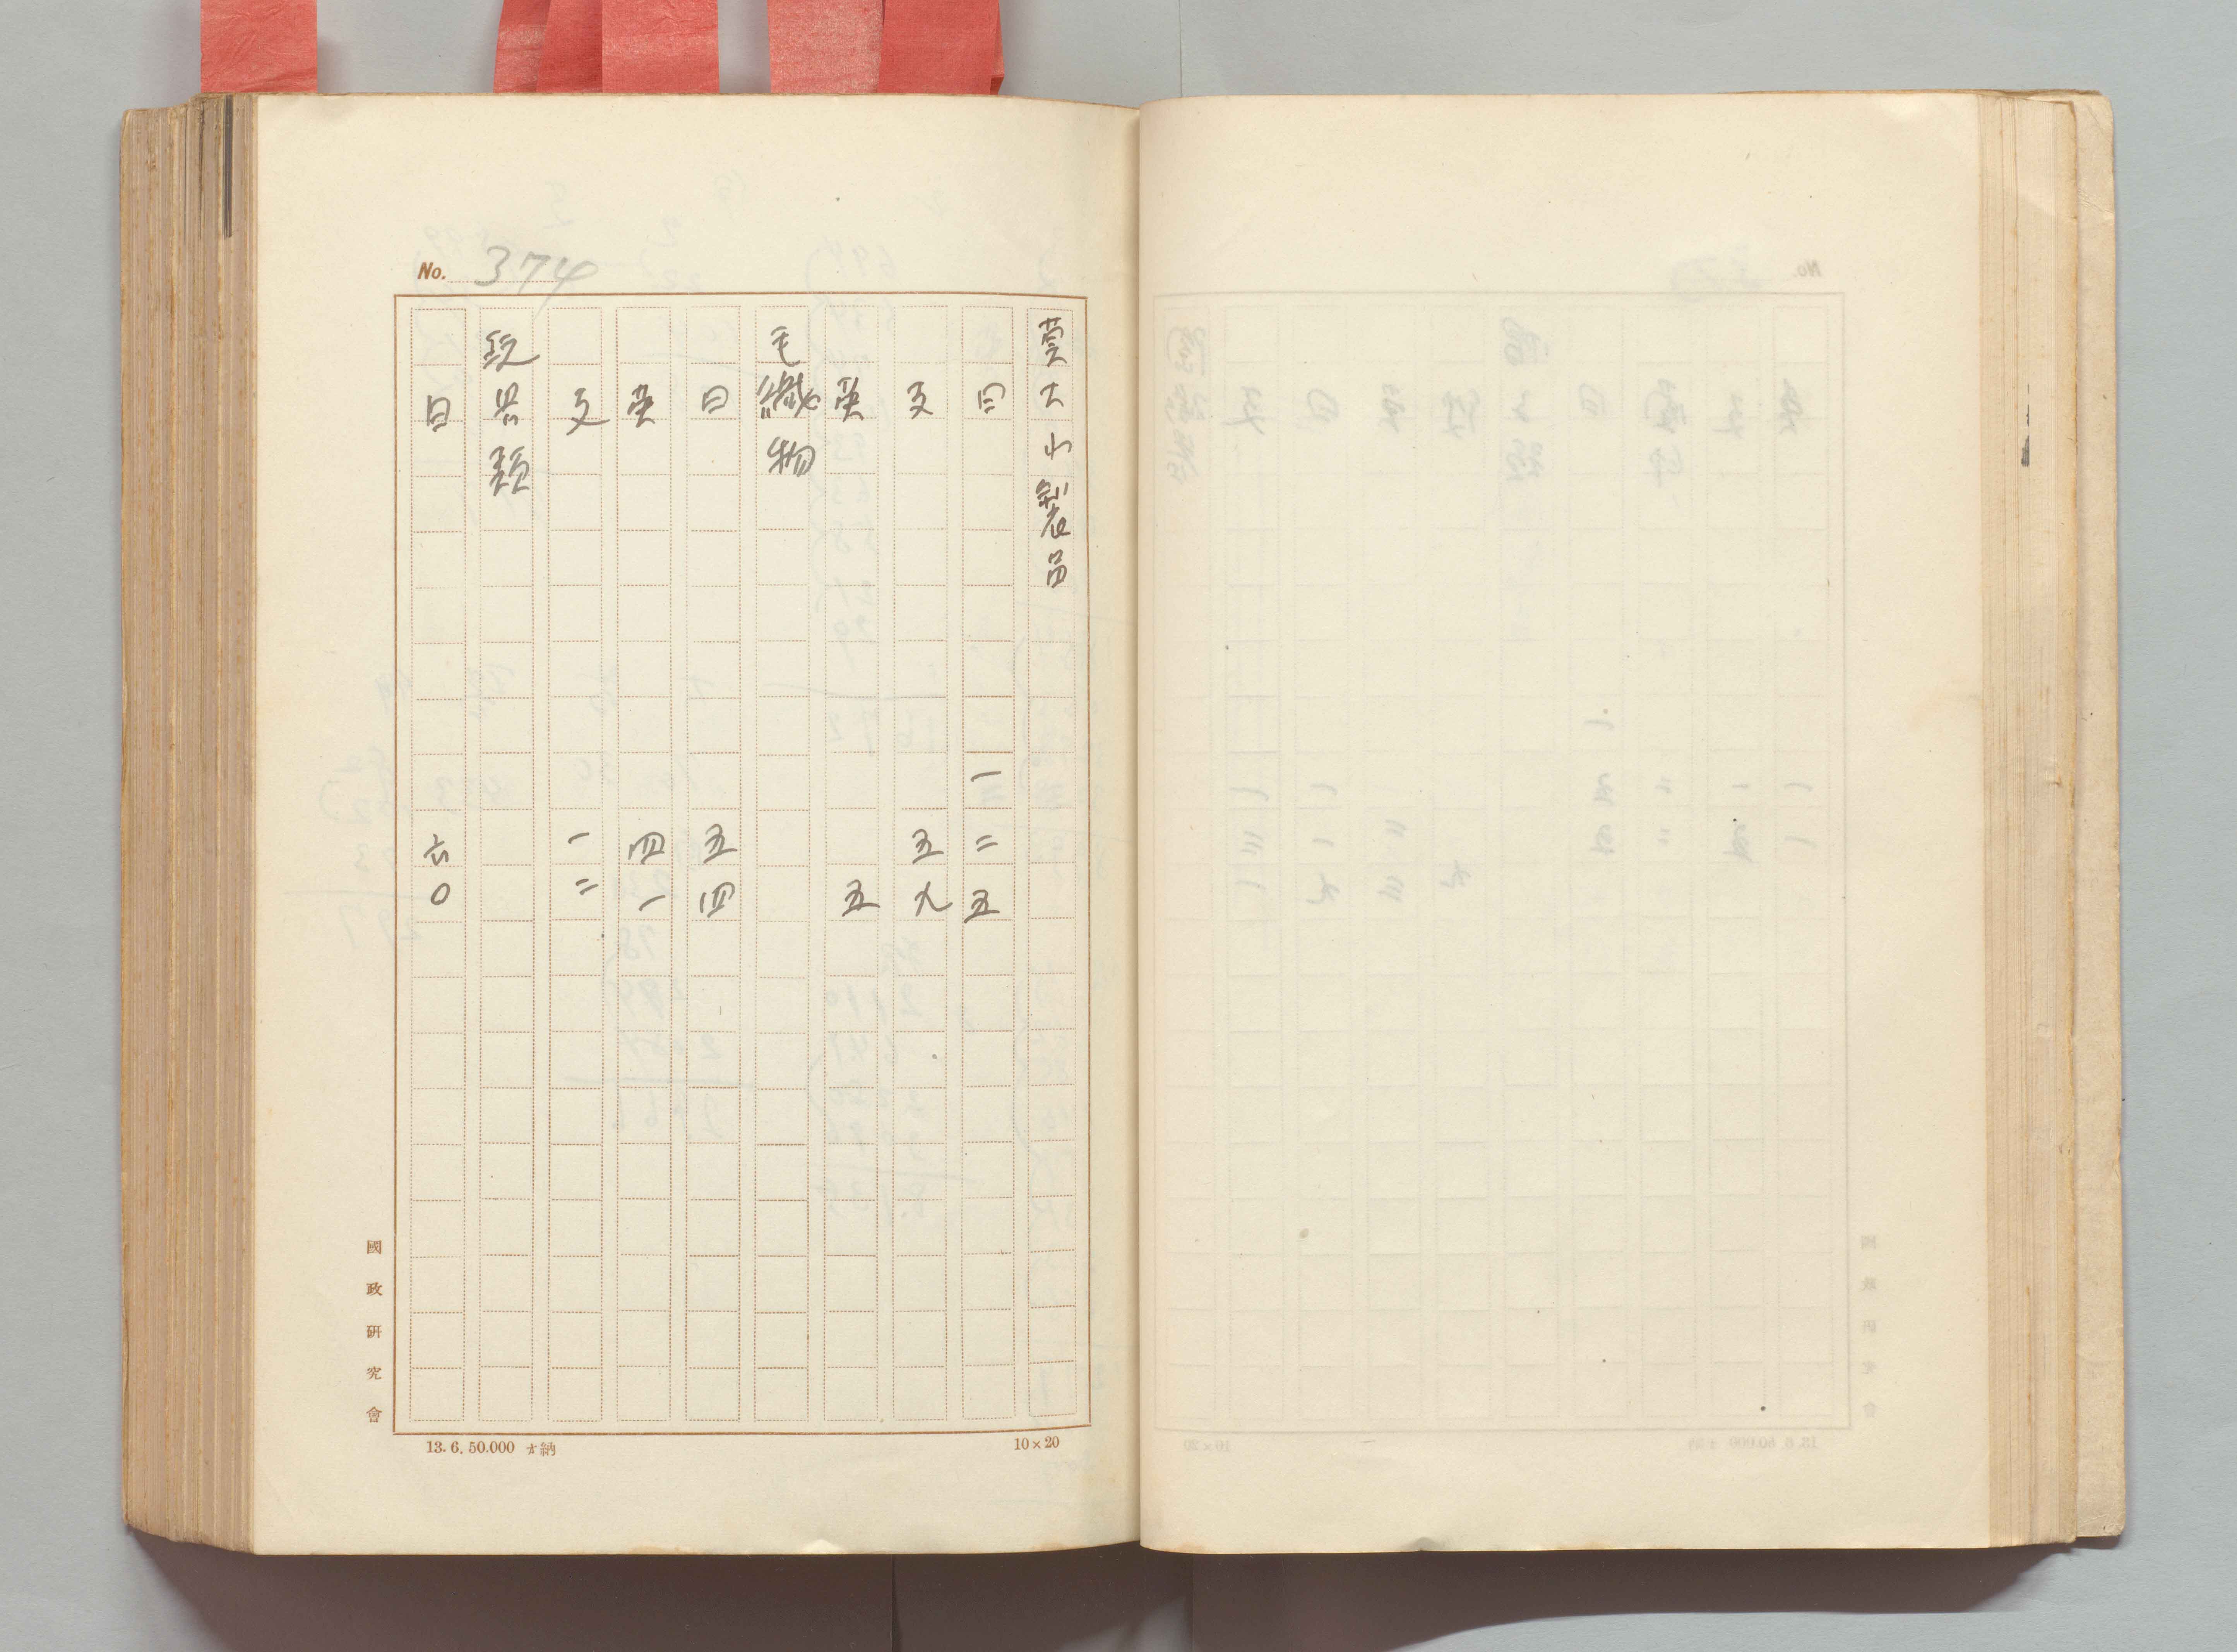 No. 374
莫大小製品
日 一二五
支 五九
英 五
毛織物
日 五四
英 四一
支 一二
類
日 六〇
國政研究會
13. 6. 50.000 納
10×20